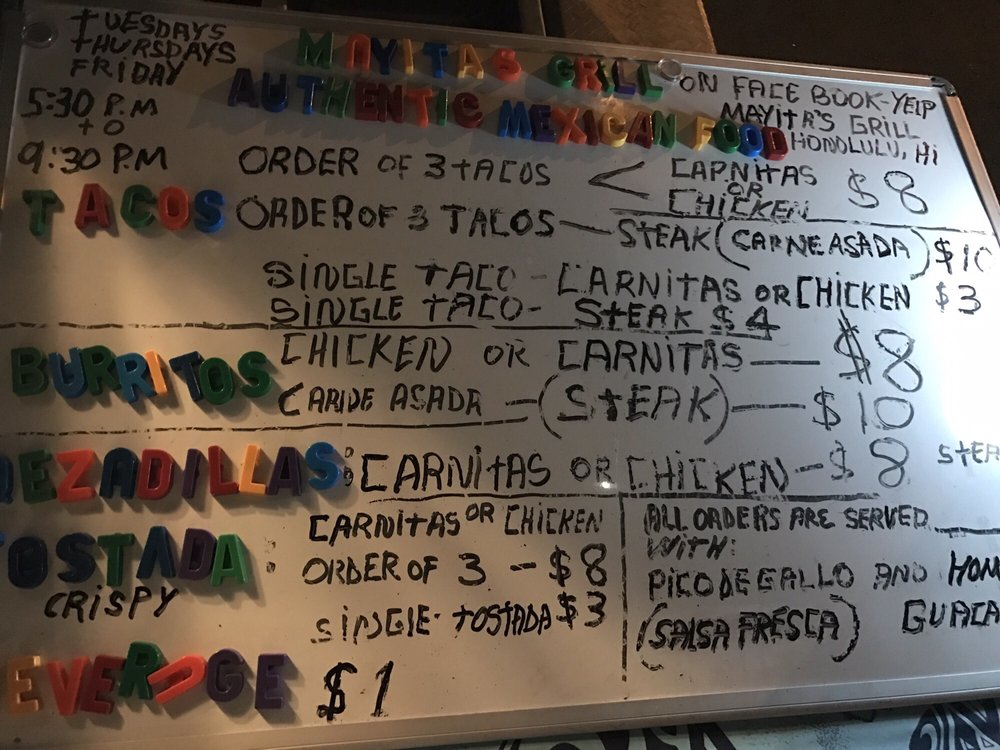 TUESDAYS
THURSDAYS
FRIDAY
5:30 P.M
TO
9:30 PM
MAYITAS GRILL
AUTHENTIC MEXICAN FOOD
ON FACE BOOK-YELP
MAYITA'S GRILL
HONOLULU, Hi
TACOS
ORDER OF 3 TACOS < CARNITAS OR CHICKEN $8
ORDER OF 3 TACOS — STEAK (CARNE ASADA) $10
SINGLE TACO - CARNITAS OR CHICKEN $3
SINGLE TACO - STEAK $4
BURRITOS
CHICKEN OR CARNITAS — $8
CARNE ASADA - (STEAK) — $10
UEZADILLAS: CARNITAS OR CHICKEN - $8 STEA
TOSTADA:
CRISPY
CARNITAS OR CHICKEN
ORDER OF 3 - $8
SINGLE TOSTADA $3
ALL ORDERS ARE SERVED
WITH:
PICO DE GALLO AND HOM
(SALSA FRESCA) GUACA
EVERAGE $1